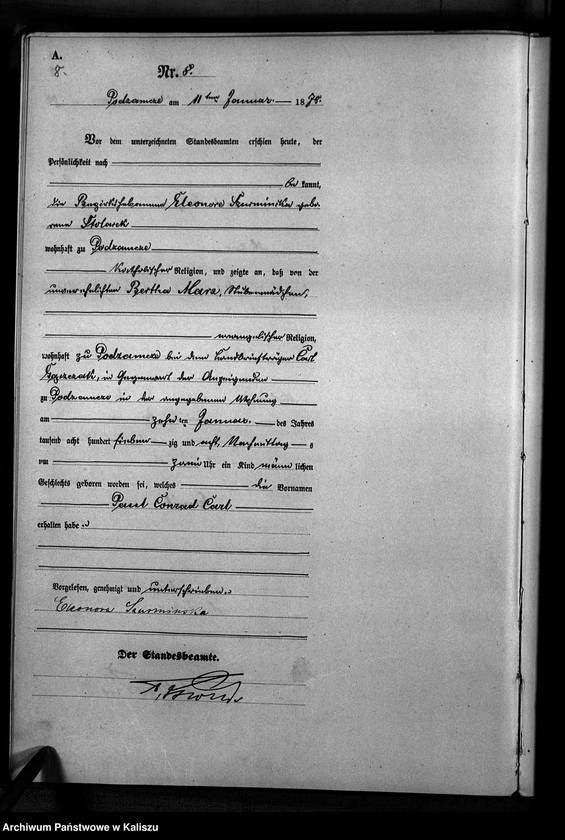 A.
8.
Nr. 8.
Podzamcze am 11ten Januar 1878.
Vor dem unterzeichneten Standesbeamten erschien heute, der
Persönlichkeit nach
be kannt,
die Bezirkshebamme Eleonore Szurminska gebo-
rene Stolarek
wohnhaft zu Podzamcze
katholischer Religion, und zeigte an, daß von der
unverehelichten Bertha Mara, Stubenmädchen,
evangelischer Religion,
wohnhaft zu Podzamcze bei dem Landbriefträger Carl
in Gegenwart der Anzeigenden
zu Podzamcze in der angegebenen Wohnung
am zehn ten Januar des Jahres
tausend acht hundert sieben zig und acht, Nachmittag s
um zwei Uhr ein Kind männ lichen
Geschlechts geboren worden sei, welches die Vornamen
Paul Conrad Carl
erhalten habe
Vorgelesen, genehmigt und unterschrieben
Eleonora Szurminska
Der Standesbeamte.
Archiwum Państwowe w Kaliszu